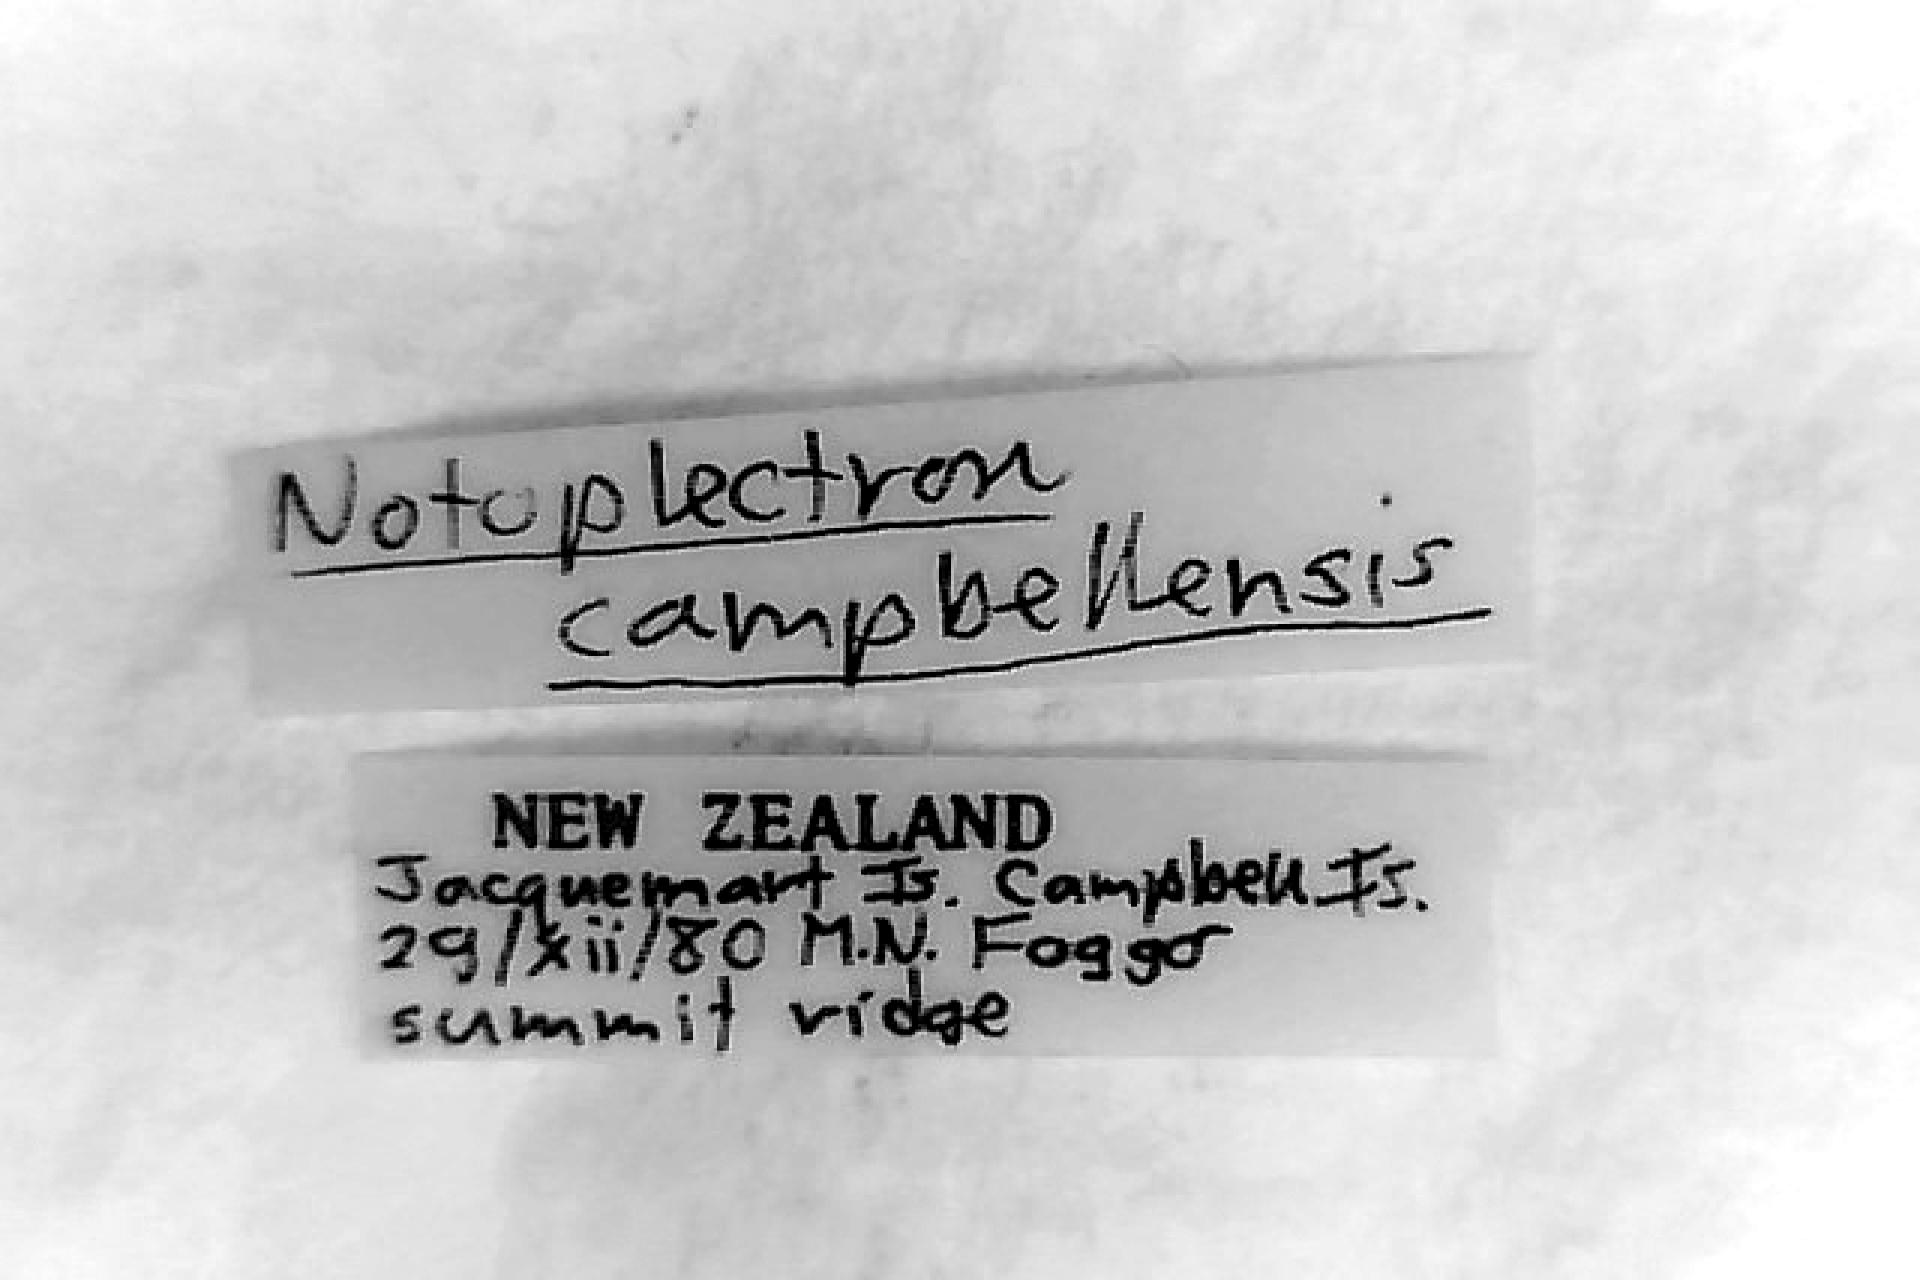 Notoplectron
campbellensis
NEW ZEALAND
Jacquemart Is. Campbell Is.
29/xii/80 M.N. Foggo
summit ridge